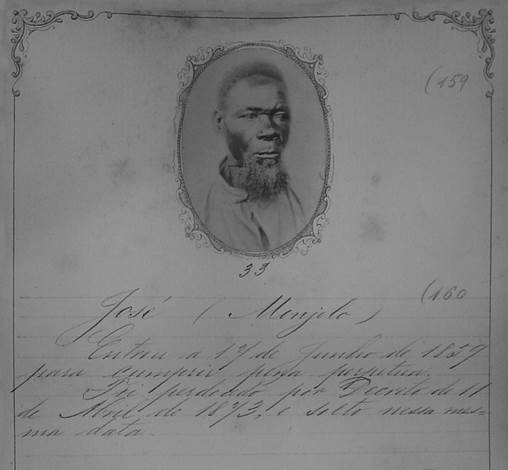 (159
33
(160
José (Monjolo)
Entrou a 17 de Junho de 1859
para cumprir pena perpetua.
Foi perdoado por Decreto de 11
de Abril de 1873, e solto nessa mes-
ma data.